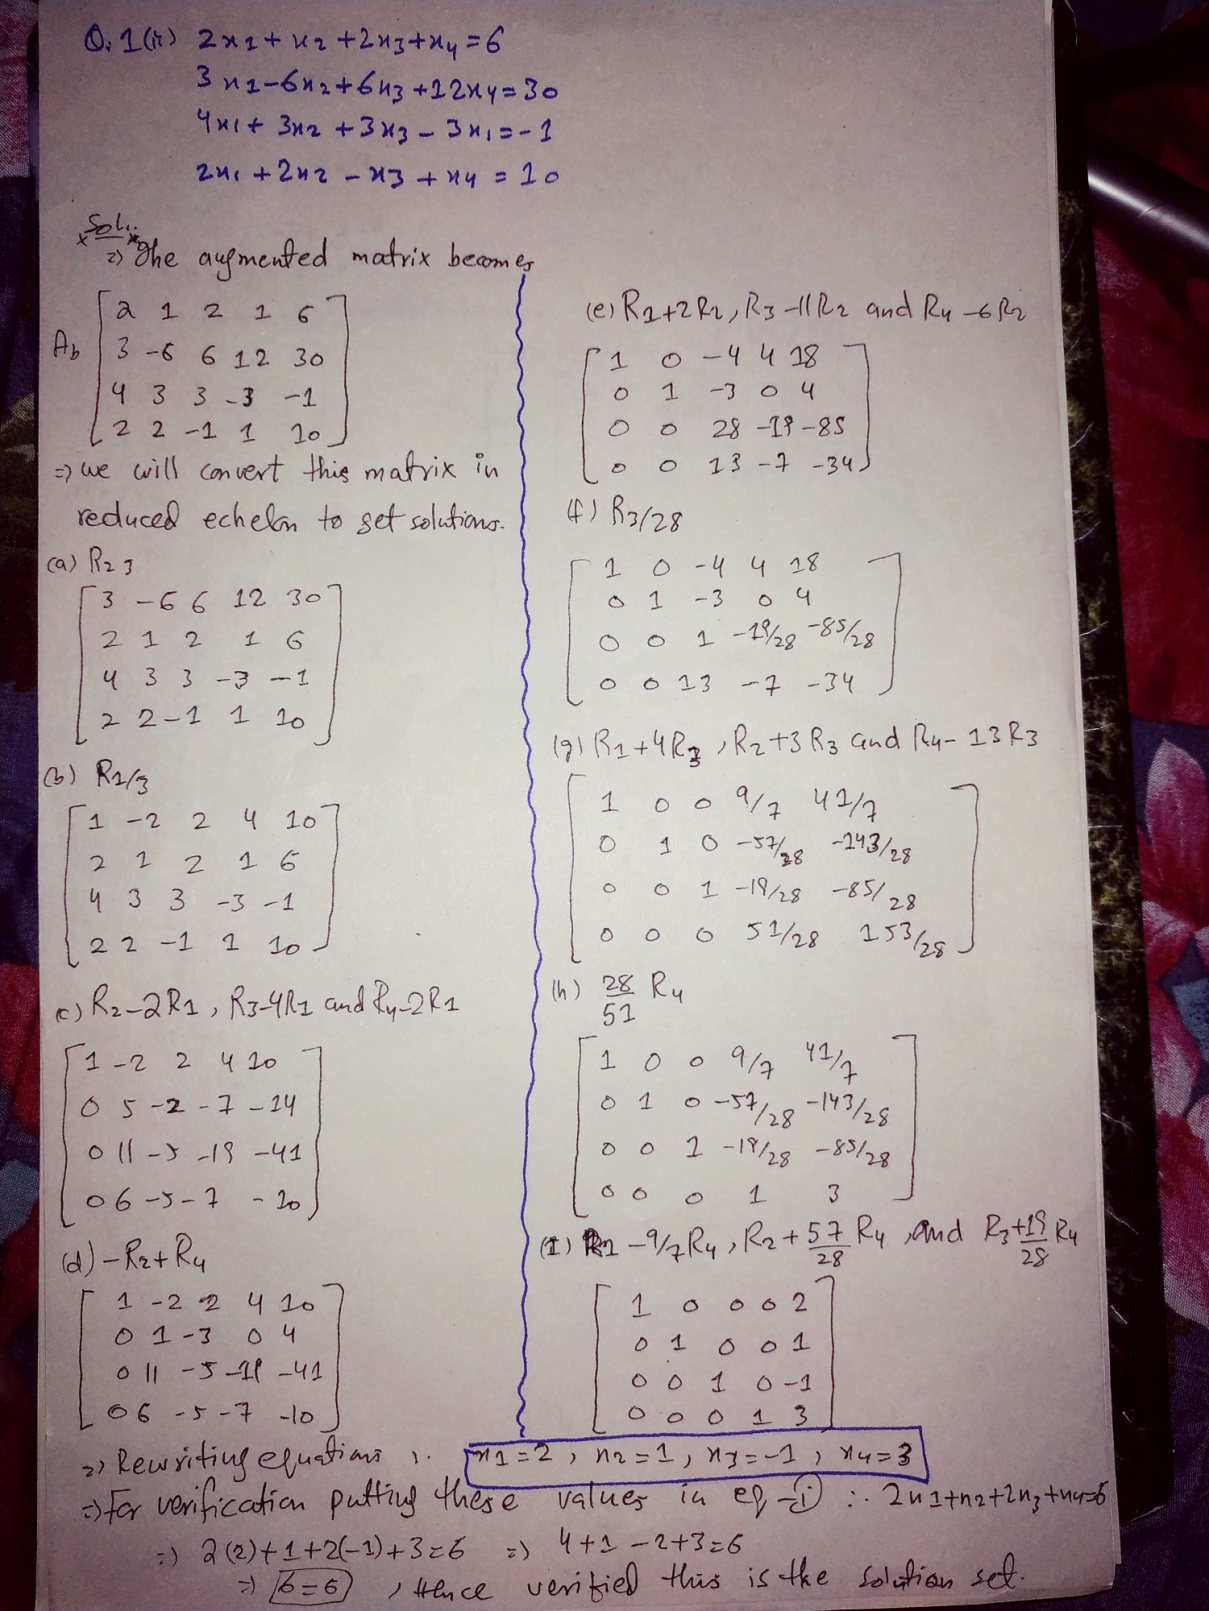 Q.1(ii) 2x1 + x2 + 2x3 + x4 = 6
3x1 - 6x2 + 6x3 + 12x4 = 30
4x1 + 3x2 + 3x3 - 3x1 = -1
2x1 + 2x2 - x3 + x4 = 10
Sol:
=> The augmented matrix becomes
Ab
2 1 2 1 6
3 -6 6 12 30
4 3 3 -3 -1
2 2 -1 1 10
=> we will convert this matrix in
reduced echelon to get solutions.
(a) R23
3 -6 6 12 30
2 1 2 1 6
4 3 3 -3 -1
2 2 -1 1 10
(b) R1/3
1 -2 2 4 10
2 1 2 1 6
4 3 3 -3 -1
2 2 -1 1 10
(c) R2-2R1, R3-4R1 and R4-2R1
1 -2 2 4 10
0 5 -2 -7 -14
0 11 -5 -19 -41
0 6 -5 -7 -10
(d) -R2+R4
1 -2 2 4 10
0 1 -3 0 4
0 11 -5 -19 -41
0 6 -5 -7 -10
(e) R1+2R2, R3-11R2 and R4-6R2
1 0 -4 4 18
0 1 -3 0 4
0 0 28 -19 -85
0 0 13 -7 -34
(f) R3/28
1 0 -4 4 18
0 1 -3 0 4
0 0 1 -19/28 -85/28
0 0 13 -7 -34
(g) R1+4R3, R2+3R3 and R4-13R3
1 0 0 9/7 41/7
0 1 0 -57/28 -143/28
0 0 1 -19/28 -85/28
0 0 0 51/28 153/28
(h) 28/51 R4
1 0 0 9/7 41/7
0 1 0 -57/28 -143/28
0 0 1 -19/28 -85/28
0 0 0 1 3
(I) R1 - 9/7 R4, R2 + 57/28 R4, and R3 + 19/28 R4
1 0 0 0 2
0 1 0 0 1
0 0 1 0 -1
0 0 0 1 3
=> Rewriting equations :. x1=2, x2=1, x3=-1, x4=3
=> For verification putting these values in eq-(i) :. 2x1+x2+2x3+x4=6
=> 2(2)+1+2(-1)+3=6 => 4+1-2+3=6
=> 6=6, Hence verified this is the solution set.